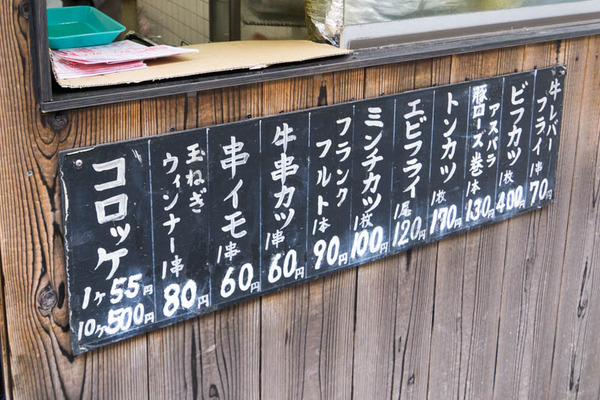 牛レバー
フライ 1串
70円
ビフカツ 1枚
400円
アスパラ
豚ロース巻 1本
130円
トンカツ 1枚
170円
エビフライ 1尾
120円
ミンチカツ 1枚
100円
フランク
フルト 1本
90円
牛串カツ 1串
60円
串イモ 1串
60円
玉ねぎ
ウィンナー 1串
80円
コロッケ
1ケ 55円
10ケ 500円